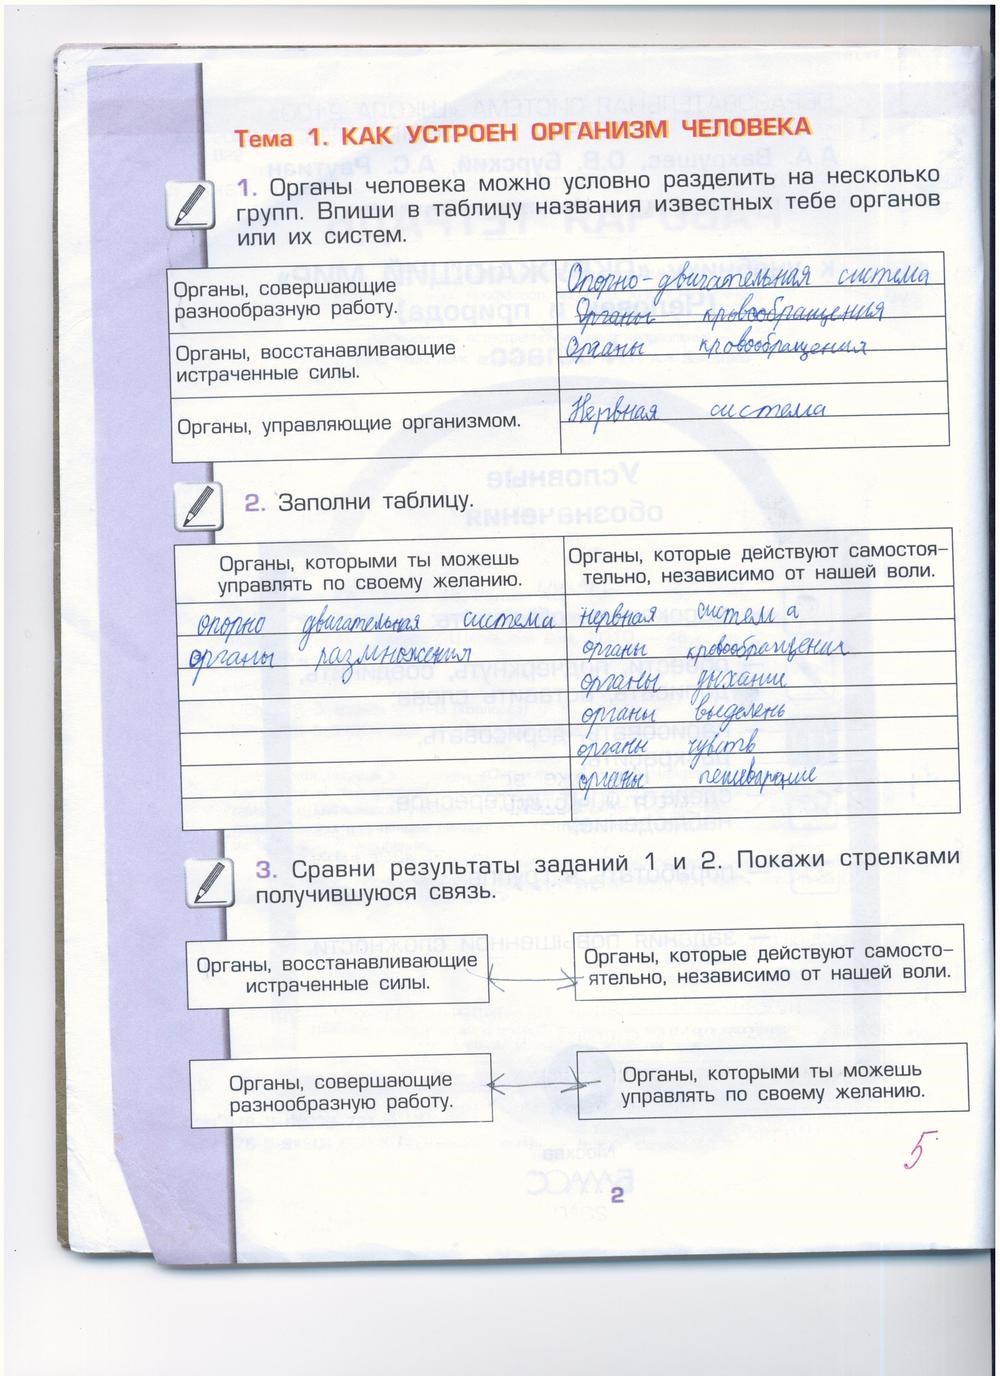 Тема 1. КАК УСТРОЕН ОРГАНИЗМ ЧЕЛОВЕКА
1. Органы человека можно условно разделить на несколько
групп. Впиши в таблицу названия известных тебе органов
или их систем.
Органы, совершающие
разнообразную работу.
Опорно-двигательная система
Органы кровообращения
Органы, восстанавливающие
истраченные силы.
Органы кровообращения
Органы, управляющие организмом.
Нервная система
2. Заполни таблицу.
Органы, которыми ты можешь
управлять по своему желанию.
Органы, которые действуют самостоя-
тельно, независимо от нашей воли.
опорно двигательная система
нервная система
органы размножения
органы кровообращения
органы дыхание
органы выделень
органы чувств
органы
3. Сравни результаты заданий 1 и 2. Покажи стрелками
получившуюся связь.
Органы, восстанавливающие
истраченные силы.
Органы, которые действуют самосто-
ятельно, независимо от нашей воли.
Органы, совершающие
разнообразную работу.
Органы, которыми ты можешь
управлять по своему желанию.
5
2